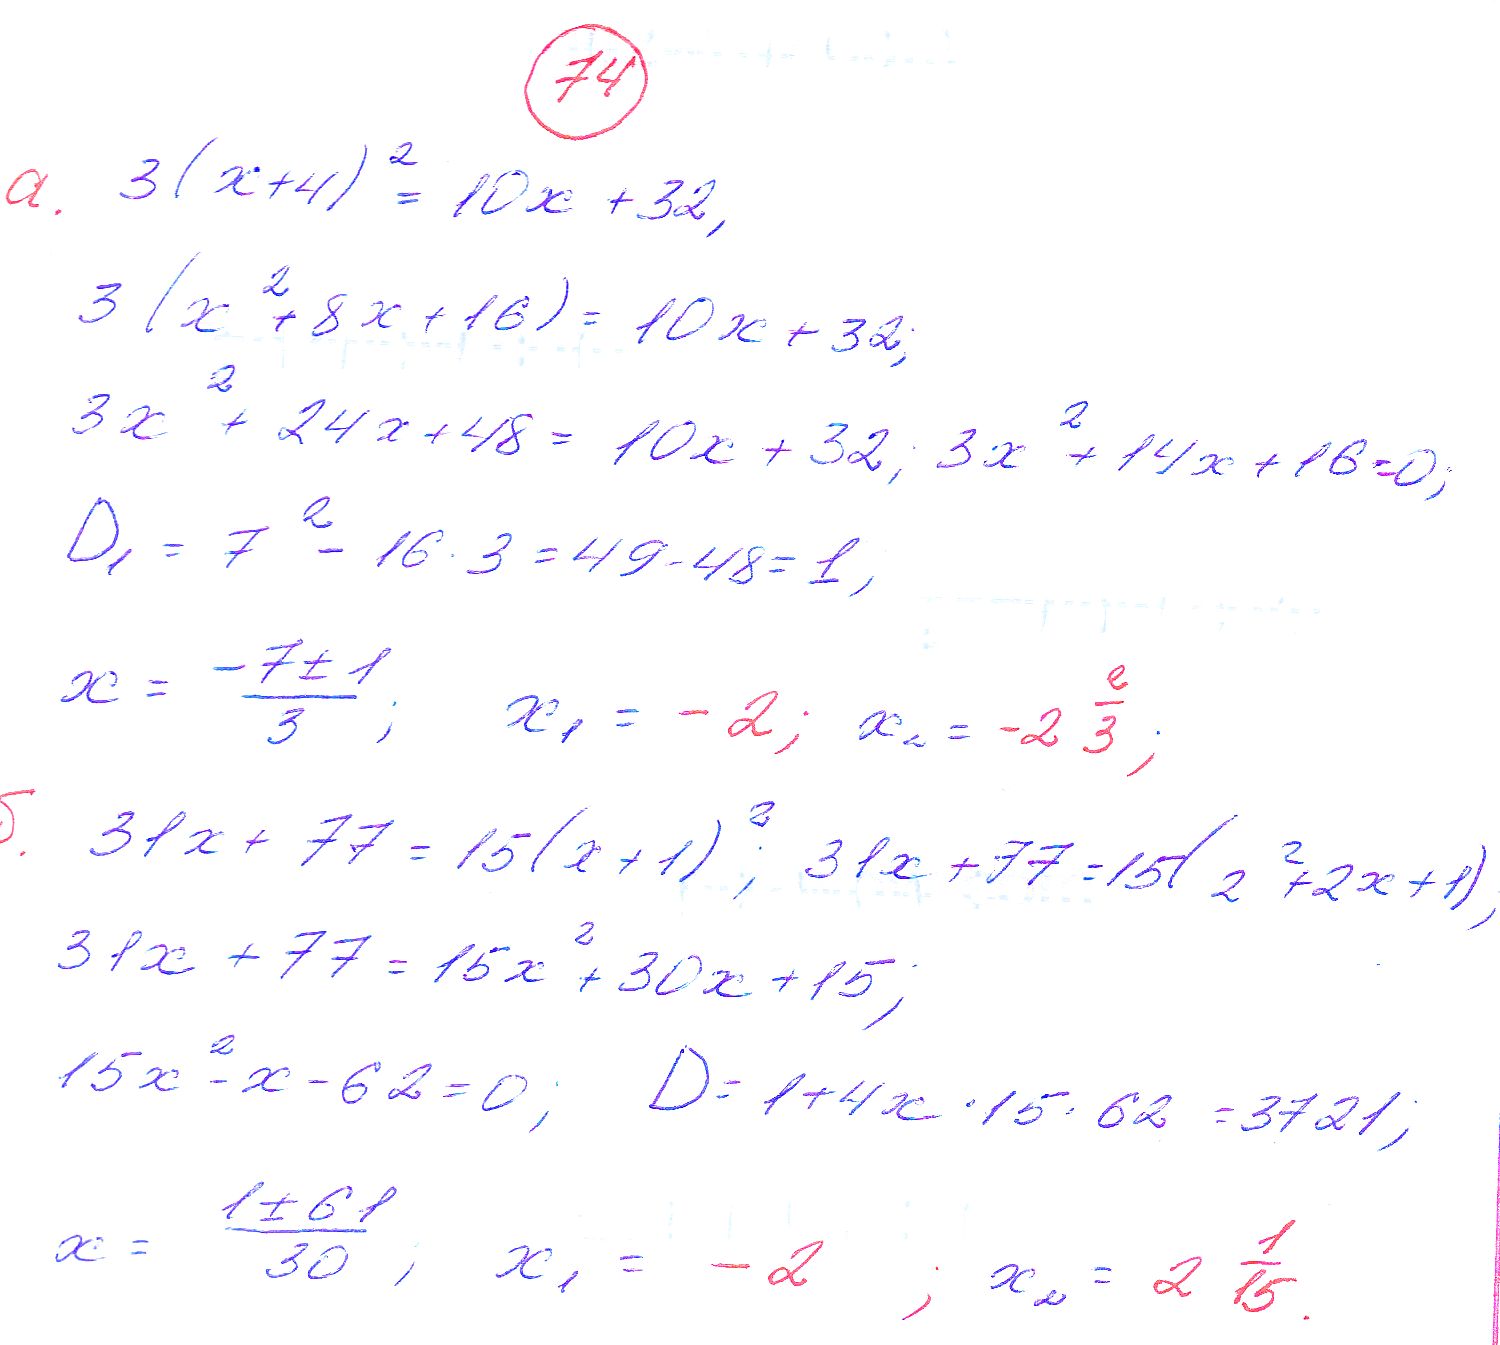 74
а. 3(x+4)² = 10x + 32,
3(x² + 8x + 16) = 10x + 32;
3x² + 24x + 48 = 10x + 32; 3x² + 14x + 16 = 0;
D₁ = 7² - 16·3 = 49 - 48 = 1,
x = (-7 ± 1)/3; x₁ = -2; x₂ = -2 2/3;
б. 31x + 77 = 15(x+1)²; 31x + 77 = 15(2² + 2x + 1),
31x + 77 = 15x² + 30x + 15;
15x² - x - 62 = 0; D = 1 + 4x·15·62 = 3721;
x = (1 ± 61)/30; x₁ = -2; x₂ = 2 1/15.